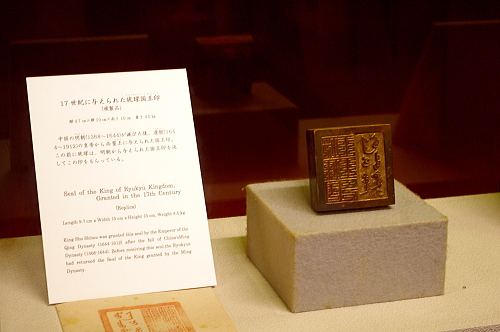 17世紀に与えられた琉球国王印
(複製品)
中国の明朝(1368～1644)が滅びた後、清朝(164
4～1912)の皇帝から尚質王に与えられた国王印。
この前に琉球は、明朝から与えられた国王印を返
してこの印をもらっている。
Seal of the King of Ryukyu Kingdom,
Granted in the 17th Century
(Replica)
Length 9.7 cm x Width 10 cm x Height 10 cm, Weight 4.5 kg
King Sho Shitsu was granted this seal by the Emperor of the
Qing Dynasty (1644-1912) after the fall of China's Ming
Dynasty (1368-1644). Before receiving this seal, the Ryukyus
had returned the Seal of the King granted by the Ming
Dynasty.